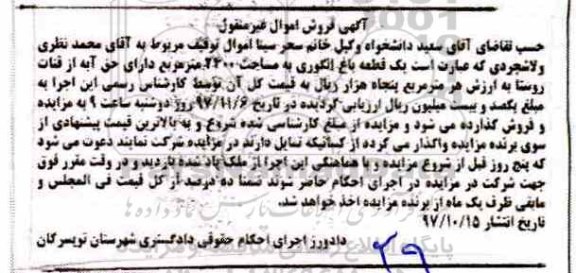 آگهی فروش اموال غیرمنقول
حسب تقاضای آقای سعید دانشخواه وکیل خانم سحر سینا اموال توقیف مربوط به آقای محمد نظری
ولاشجردی که عبارت است یک قطعه باغ انگوری به مساحت ۲۴۰۰مترمربع دارای حق آبه از قنات
روستا به ارزش هر مترمربع پنجاه هزار ریال به قیمت کل آن توسط کارشناس رسمی این اجرا به
مبلغ یکصد و بیست میلیون ریال ارزیابی گردیده در تاریخ ۹۷/۱۱/۶ روز دوشنبه ساعت ۹ به مزایده
و فروش گذارده می شود و مزایده از مبلغ کارشناسی شده شروع و به بالاترین قیمت پیشنهادی از
سوی برنده مزایده واگذار می گردد از کسانیکه تمایل دارند در مزایده شرکت نمایند دعوت می شود
که پنج روز قبل از شروع مزایده و با هماهنگی این اجرا از ملک یاد شده بازدید و در وقت مقرر فوق
جهت شرکت در مزایده در اجرای احکام حاضر شوند ضمنا ده درصد از کل قیمت فی المجلس و
مابقی ظرف یک ماه از برنده مزایده اخذ خواهد شد.
تاریخ انتشار ۹۷/۱۰/۱۵
دادورز اجرای احکام حقوقی دادگستری شهرستان تویسرکان